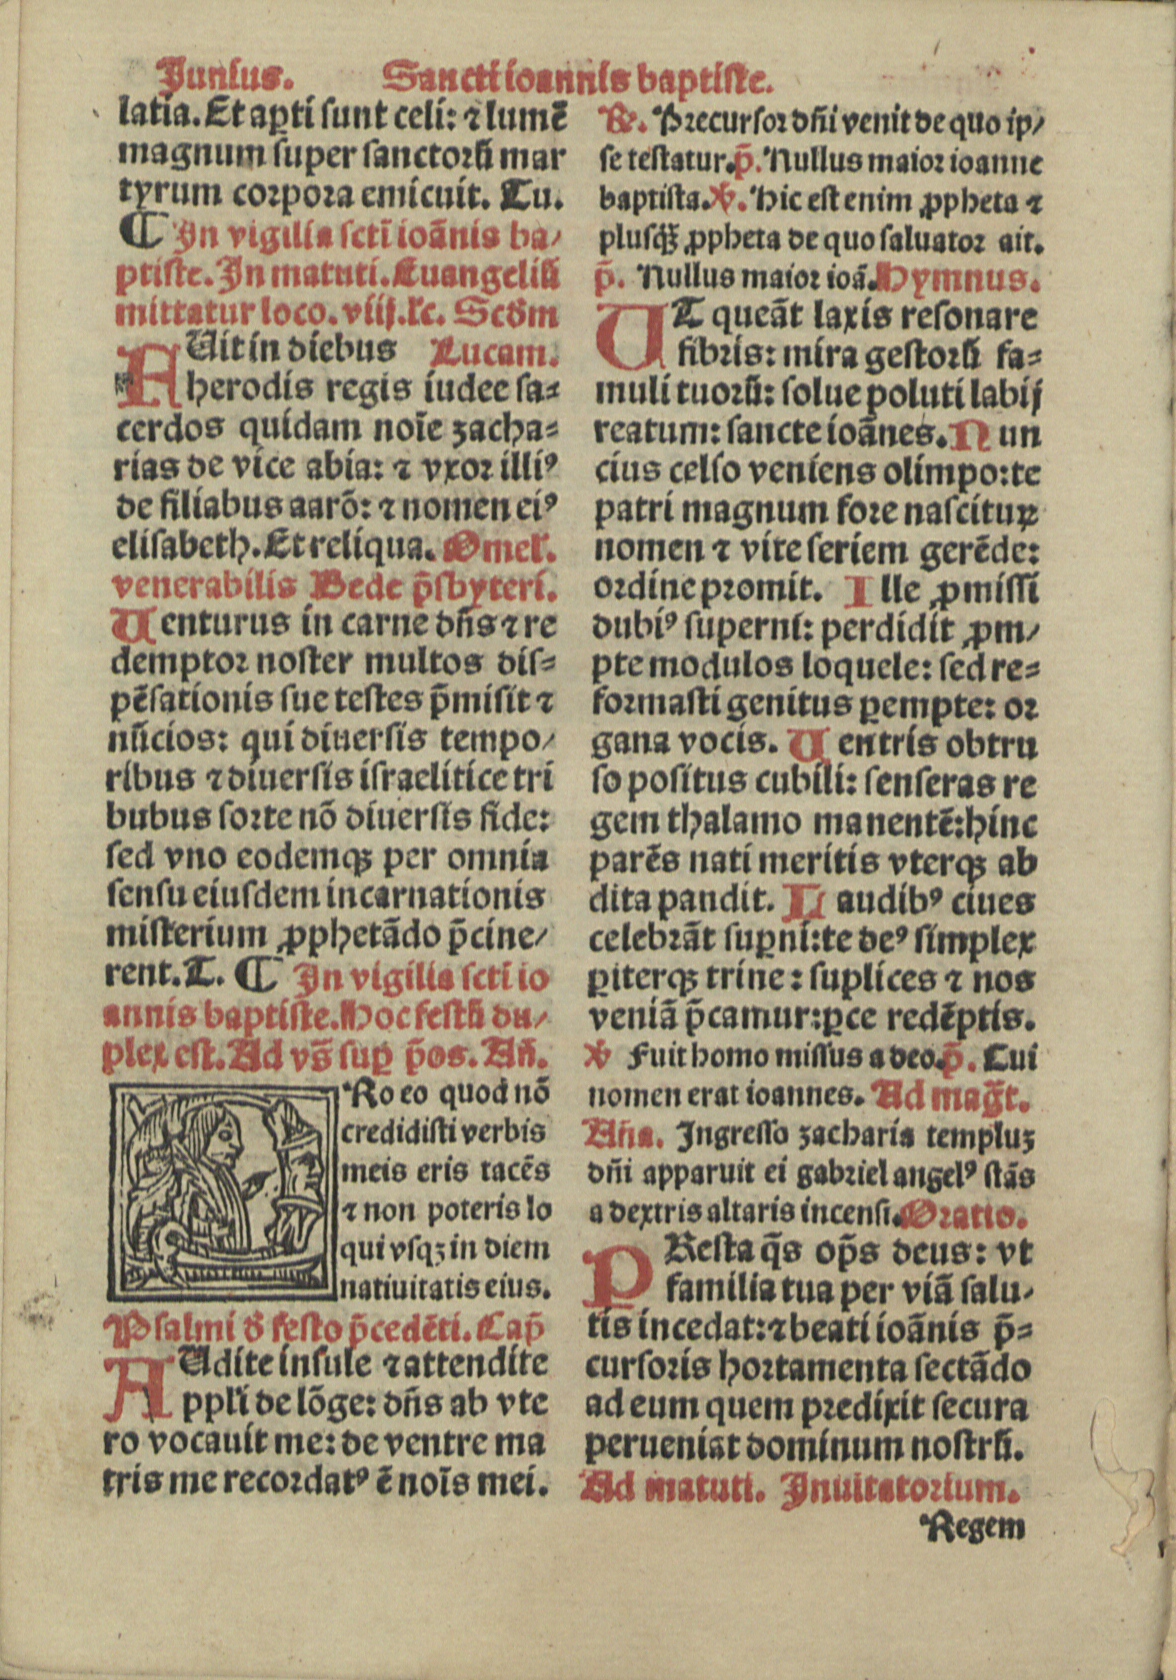 Junius. Sancti ioannis baptiste.
latia. Et aꝑti sunt celi: ⁊ lumē
magnum super sanctorū mar
tyrum corpora emicuit. Tu.
¶ In vigilia sctī ioānis ba/
ptiste. In matuti. Euangeliū
mittatur loco. viij. lc. Scďm
FVit in diebus Lucam.
herodis regis iudee sa⸗
cerdos quidam noīe zacha⸗
rias de vice abia: ⁊ vxor illiꝰ
de filiabus aarō: ⁊ nomen eiꝰ
elisabeth. Et reliqua. Omel.
venerabilis Bede p̄sbyteri.
Uenturus in carne dn̄s ⁊ re
demptor noster multos dis⸗
pēsationis sue testes p̄misit ⁊
nūcios: qui diuersis tempo/
ribus ⁊ diuersis israelitice tri
bubus sorte nō diuersis fide:
sed vno eodemqꝫ per omnia
sensu eiusdem incarnationis
misterium ꝓphetādo p̄cine/
rent. T. ¶ In vigilia sctī io
annis baptiste. Hoc festū du/
plex est. Ad vs̄ suꝑ p̄os. An̄.
Ro eo quod nō
credidisti verbis
meis eris tacēs
⁊ non poteris lo
qui vsqꝫ in diem
natiuitatis eius.
Psalmi ď festo p̄cedēti. Cap̄
AUdite insule ⁊ attendite
ppl̄i de lōge: dn̄s ab vte
ro vocauit me: de ventre ma
tris me recordatꝰ ē noīs mei.
℞. Precursor dn̄i venit de quo ip/
se testatur. p̄. Nullus maior ioanne
baptista. ℣. Hic est enim ꝓpheta ⁊
plusqꝫ ꝓpheta de quo saluator ait.
p̄. Nullus maior ioā. Hymnus.
UT queāt laxis resonare
fibris: mira gestorū fa⸗
muli tuorū: solue poluti labij
reatum: sancte ioānes. Nun
cius celso veniens olimpo: te
patri magnum fore nasciturꝫ
nomen ⁊ vite seriem gerēde:
ordine promit. Ille ꝓmissi
dubiꝰ superni: perdidit ꝓm/
pte modulos loquele: sed re⸗
formasti genitus ꝑempte: or
gana vocis. Uentris obtru
so positus cubili: senseras re
gem thalamo manentē: hinc
parēs nati meritis vterqꝫ ab
dita pandit. Laudibꝰ ciues
celebrāt suꝑni: te deꝰ simplex
ꝑiterqꝫ trine: suplices ⁊ nos
veniā p̄camur: ꝑce redēptis.
℣ Fuit homo missus a deo. p̄. Cui
nomen erat ioannes. Ad mag̃t.
An̄a. Ingresso zacharia templuꝫ
dn̄i apparuit ei gabriel angelꝰ stās
a dextris altaris incensi. Oratio.
PResta q̄s op̄s deus: vt
familia tua per viā salu⸗
tis incedat: ⁊ beati ioānis p̄⸗
cursoris hortamenta sectādo
ad eum quem predixit secura
perueniat dominum nostrū.
Ad matuti. Inuitatorium.
Regem